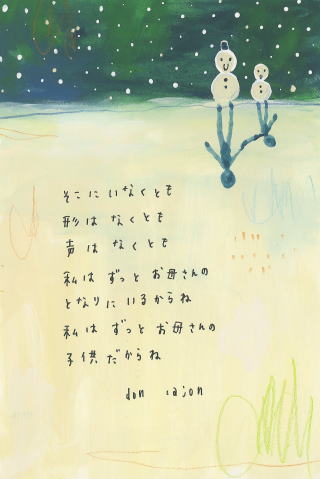 そこにいなくとも
形は なくとも
声は なくとも
私は ずっと お母さんの
となりに いるからね
私は ずっと お母さんの
子供だからね
don